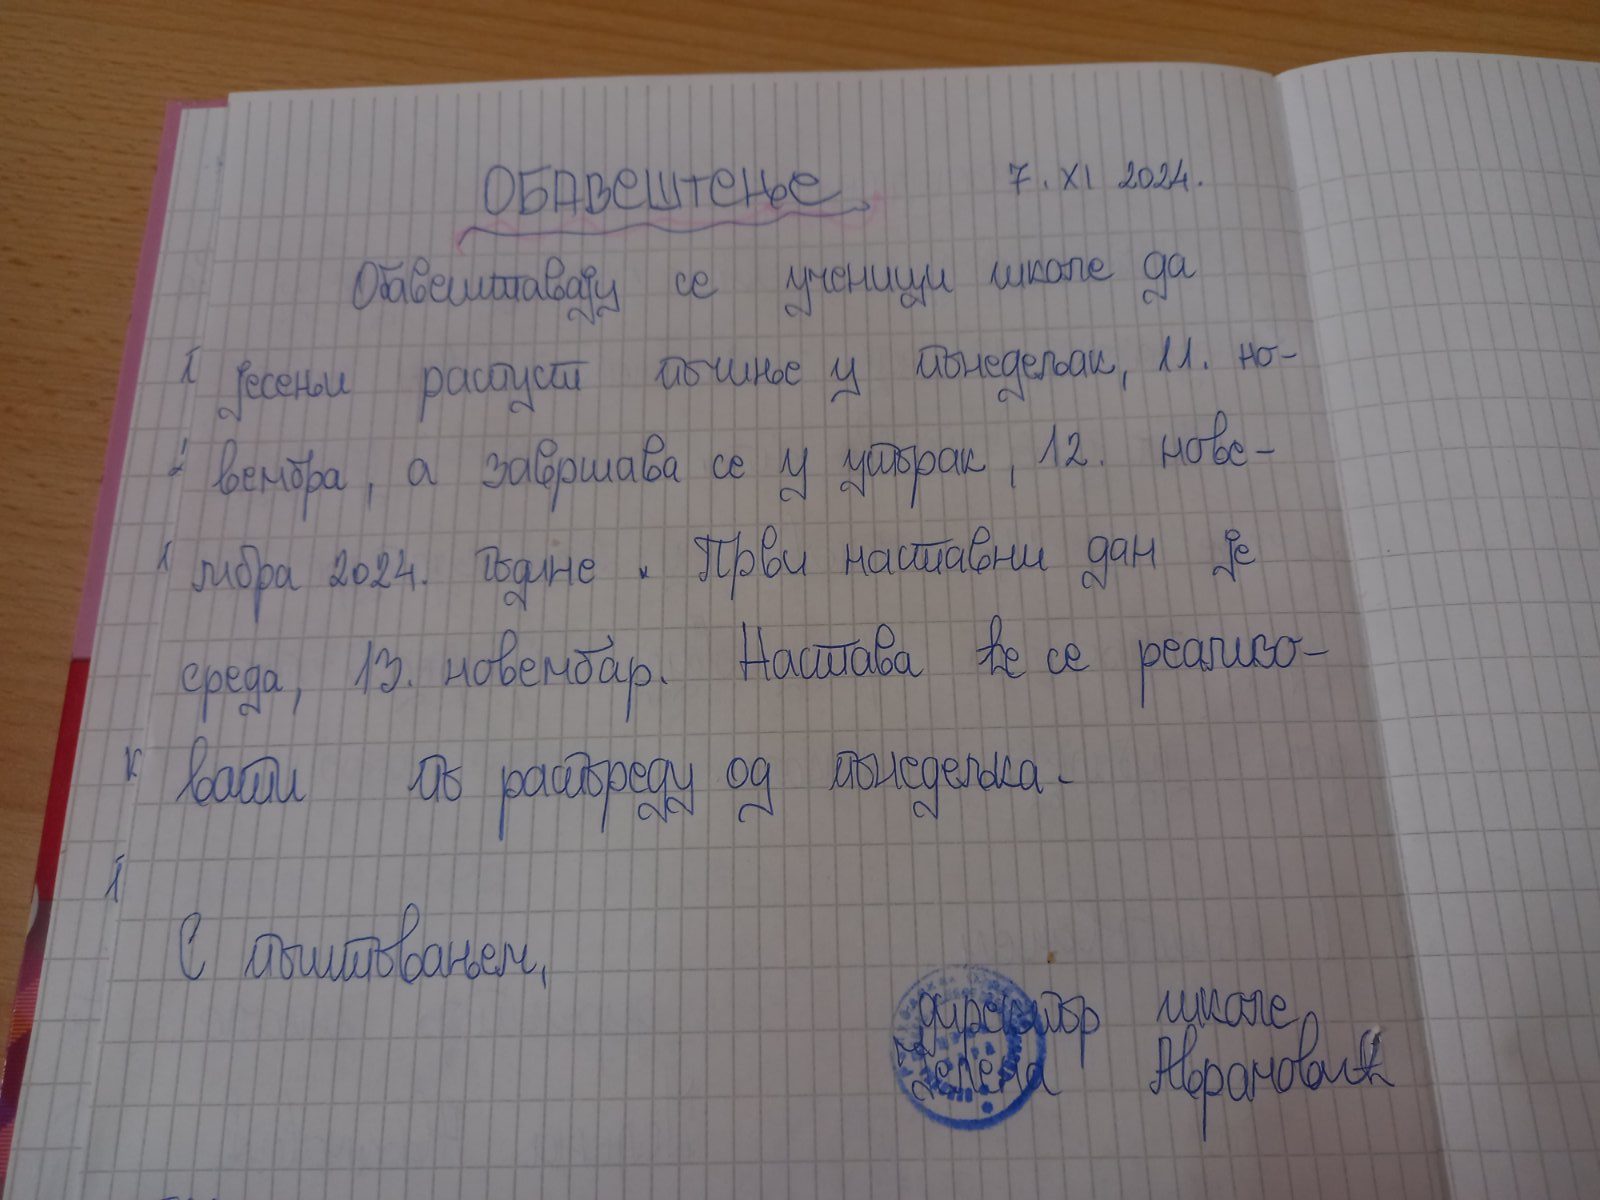 ОБАВЕШТЕЊЕ 7. XI 2024.
Обавештавају се ученици школе да
јесењи распуст почиње у понедељак, 11. но-
вембра, а завршава се у уторак, 12. нове-
мбра 2024. године. Први наставни дан је
среда, 13. новембар. Настава ће се реализо-
вати по распореду од понедељка.
С поштовањем,
директор школе
Јелена Аврамовић